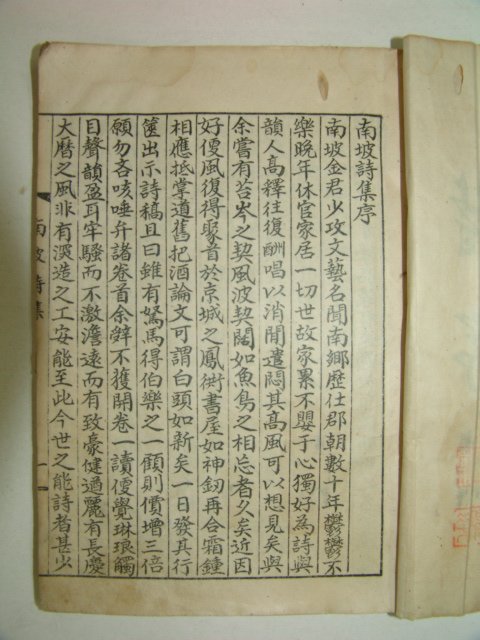 南坡詩集序
南坡金君少攻文藝名聞南鄉歷仕郡朝數十年鬱鬱不
樂晚年休官家居一切世故家累不嬰于心獨好為詩與
韻人高釋往復酬唱以消閒遣悶其高風可以想見矣與
余嘗有苔岑之契風波契闊如魚鳥之相忘者久矣近因
好便風復得聚首於京城之鳳街書屋如神釰再合霜鍾
相應抵掌道舊把酒論文可謂白頭如新矣一日發其行
篋出示詩稿且曰雖有駑馬得伯樂之一顧則價增三倍
願勿吝咳唾弁諸卷首余辭不獲開卷一讀便覺琳琅觸
目聲韻盈耳牢騷而不激澹遠而有致豪健遒麗有長慶
大曆之風非有深造之工安能至此今世之能詩者甚少
南坡詩集
一